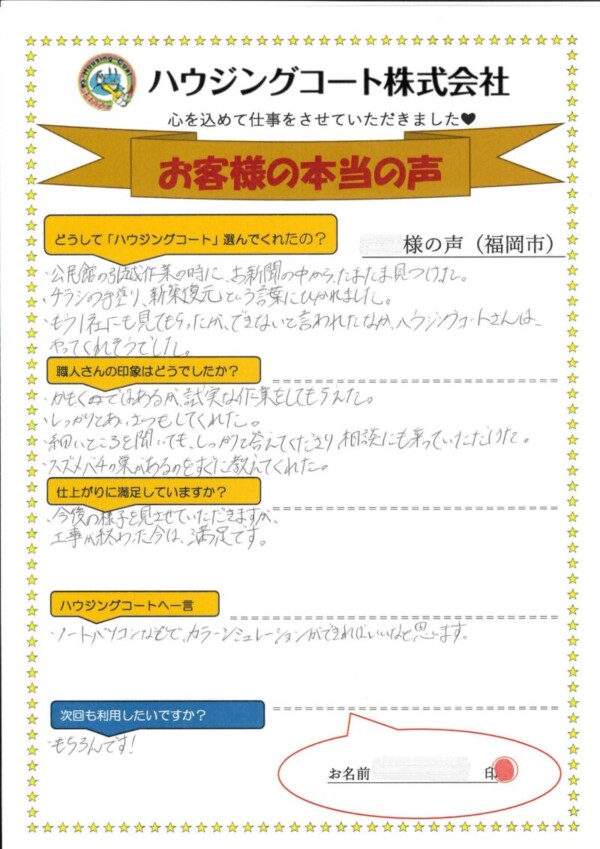 ハウジングコート株式会社
心を込めて仕事をさせていただきました♥
お客様の本当の声
どうして「ハウジングコート」選んでくれたの？
様の声（福岡市）
・公民館の引越作業の時に、お新聞の中から、たまたま見つけた。
・チラシの手塗り、新築復元という言葉にひかれました。
・もう1社にも見てもらったが、できないと言われたなか、ハウジングコートさんは、
やってくれそうでした。
職人さんの印象はどうでしたか？
・かもくめではあるが、誠実な作業をしてもらえた。
・しっかりとあいさつもしてくれた。
・細いところを聞いても、しっかり答えてくださり、相談にも乗っていただけた。
・スズメバチの巣があるのをすぐに教えてくれた。
仕上がりに満足していますか？
・今後の様子を見させていただきますが、
工事が終わった今は、満足です。
ハウジングコートへ一言
・ノートパソコンなどで、カラーシミュレーションができればいいなと思います。
次回も利用したいですか？
・もちろんです！
お名前 印